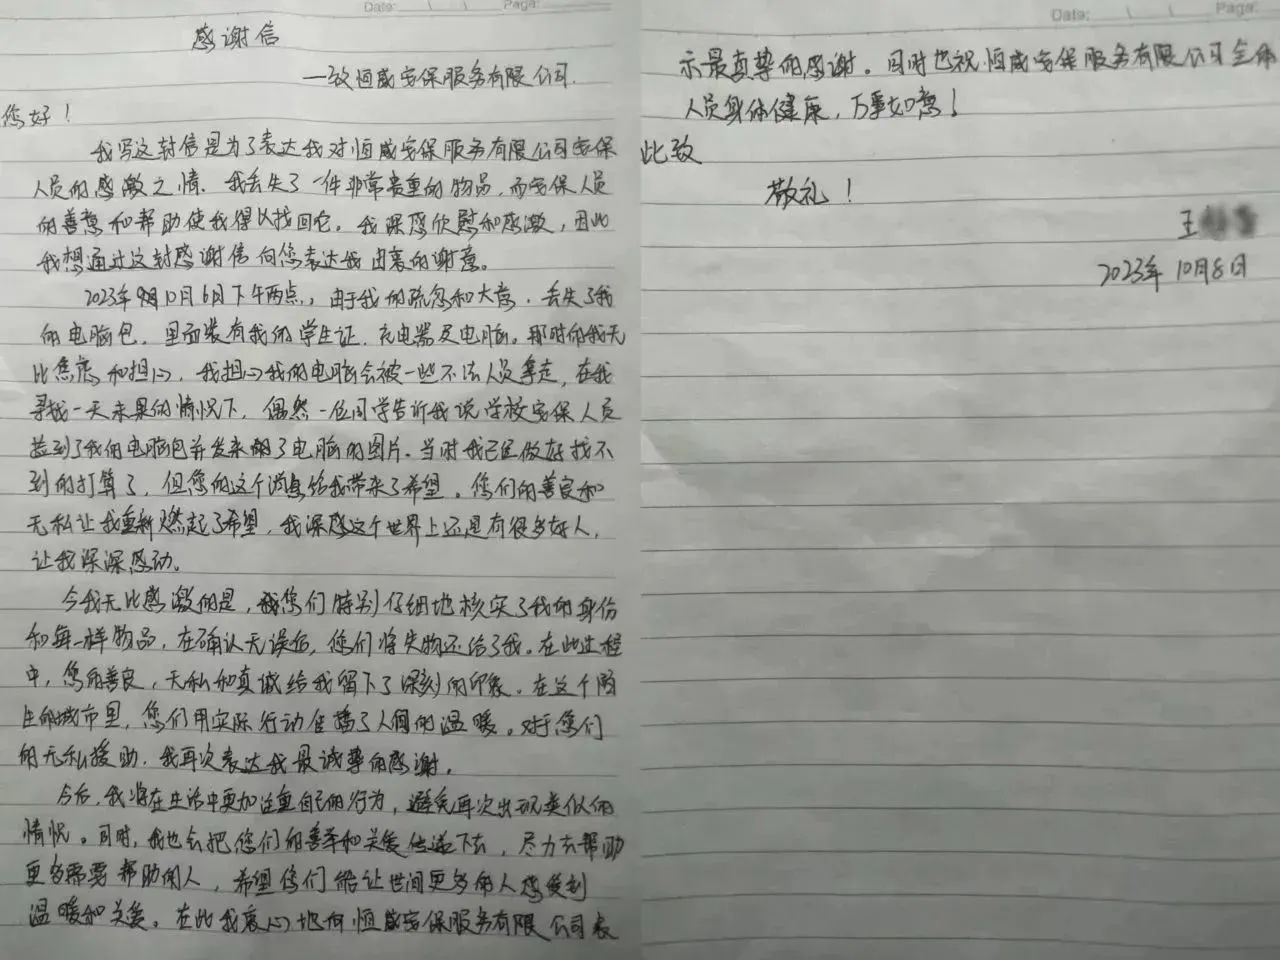 Date: \ \ Page:
感谢信
—致恒威安保服务有限公司.
您好！
我写这封信是为了表达我对恒威安保服务有限公司安保
人员的感激之情. 我丢失了一件非常贵重的物品, 而安保人员
的善意和帮助使我得以找回它。我深感欣慰和感激, 因此
我想通过这封感谢信向您表达我由衷的谢意。
2023年10月6日下午两点, 由于我的疏忽和大意. 丢失了我
的电脑包, 里面装有我的学生证, 充电器及电脑。那时的我无
比焦虑和担心, 我担心我的电脑会被一些不法人员拿走, 在我
寻找一天未果的情况下, 偶然一位同学告诉我说学校安保人员
捡到了我的电脑包并发来了电脑的图片. 当时我已经做好找不
到的打算了, 但您的这个消息给我带来了希望. 您们的善良和
无私让我重新燃起了希望, 我深感这个世界上还是有很多好人,
让我深深感动。
令我无比感激的是, 您们特别仔细地核实了我的身份
和每一样物品, 在确认无误后, 您们将失物还给了我. 在此过程
中, 您的善良, 无私和真诚给我留下了深刻的印象. 在这个陌
生的城市里, 您们用实际行动传播了人间的温暖. 对于您们
的无私援助, 我再次表达我最诚挚的感谢.
今后, 我将在生活中更加注重自己的行为, 避免再次出现类似的
情况。同时, 我也会把您们的善举和关爱传递下去, 尽力去帮助
更多需要帮助的人, 希望您们能让世间更多的人感受到
温暖和关爱. 在此我衷心地向恒威安保服务有限公司表
Date: \ \ Page:
示最真挚的感谢. 同时也祝恒威安保服务有限公司全体
人员身体健康, 万事如意！
此致
敬礼！
王
2023年10月8日